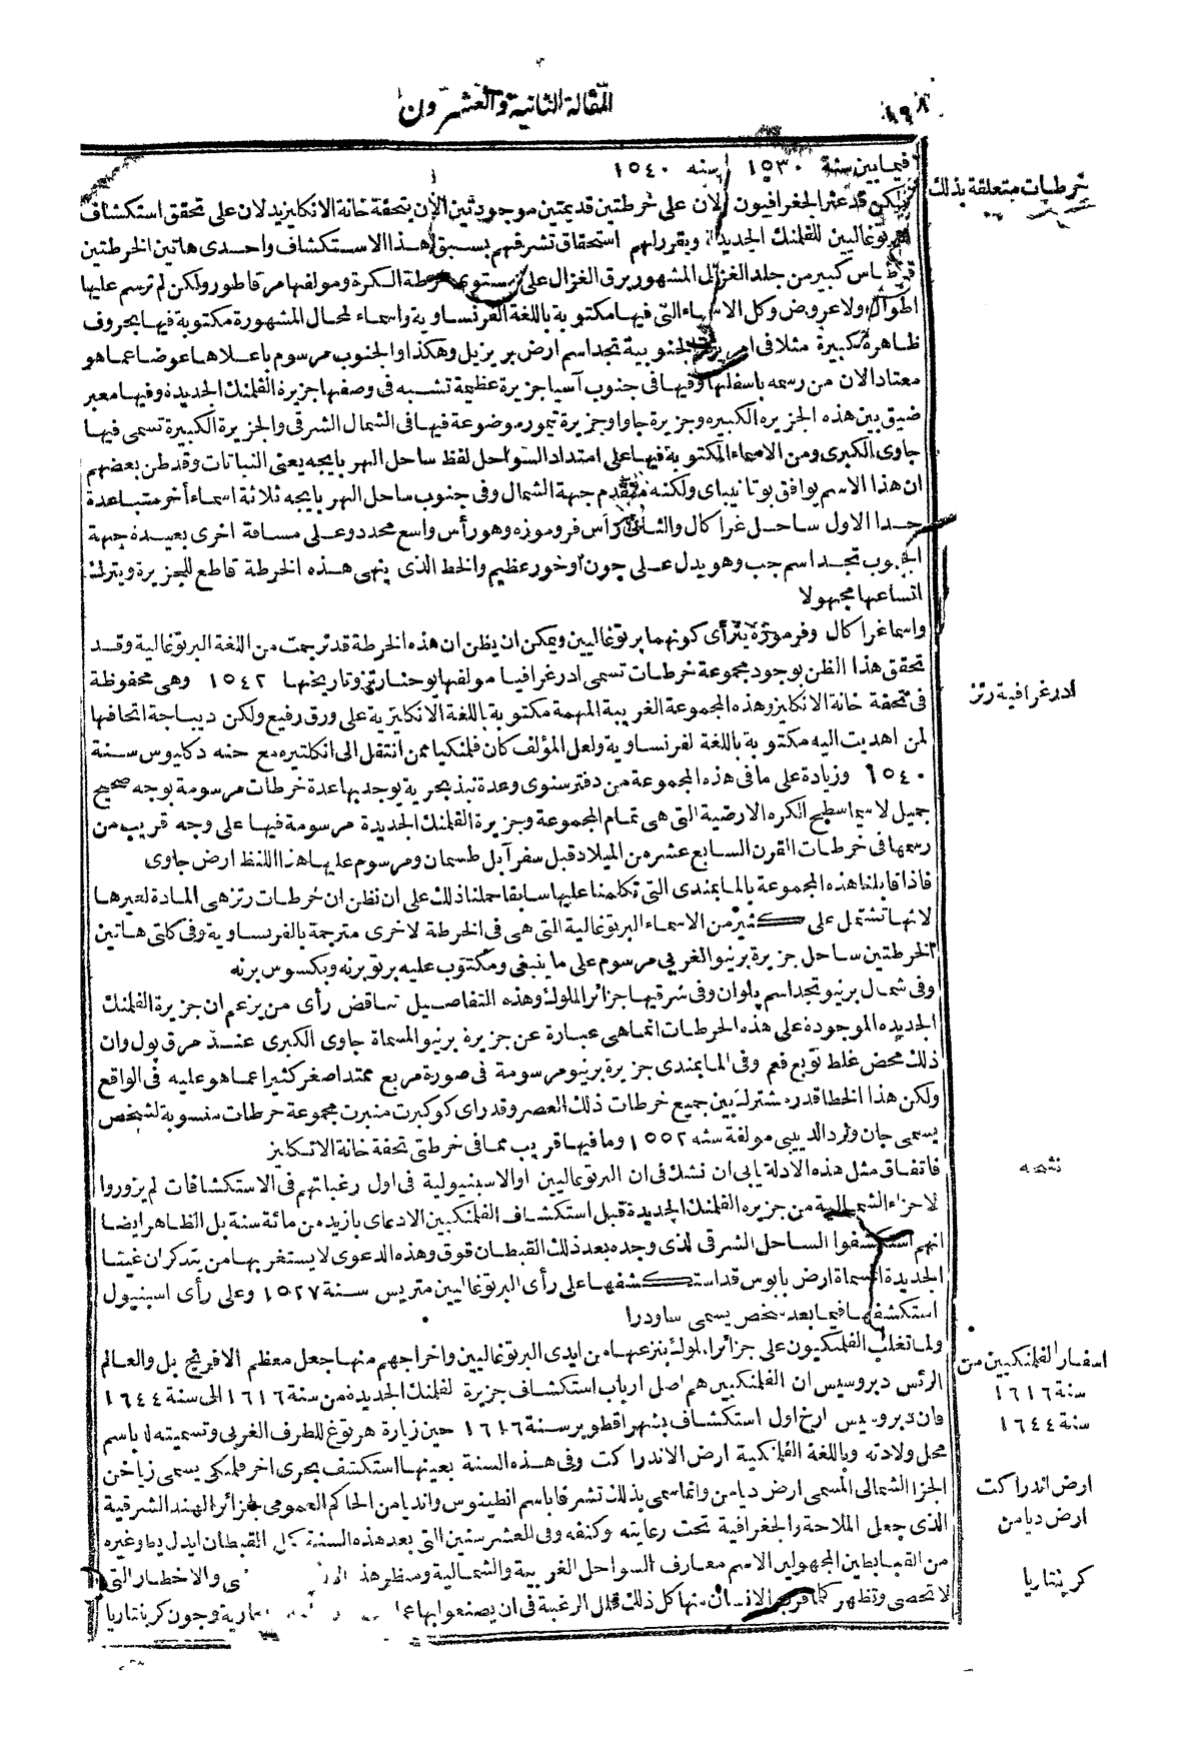 ١٩٨
المقالة الثانية والعشرون
فيما بين سنة ١٥٣٠ سنه ١٥٤٠
خرطيات متعلقة بذلك
قد عثر الجغرافيون الان على خرطتين قديمتين موجودتين الان بتحفة خانة الانكليز يدلان على تحقق استكشاف
البرتوغاليين للفلنك الجديدة ويقرر لهم استحقاق تشرفهم بسبق هذا الاستكشاف واحدى هاتين الخرطتين
كبير من جلد الغزال المشهور برق الغزال على مستوى خرطة الكرة ومولفها مرقاطور ولكن لم ترسم عليها
اطوال ولا عروض وكل الاسماء التى فيها مكتوبة باللغة الفرنساوية واسماء لمحال المشهورة مكتوبة فيها بحروف
ظاهرة كبيرة مثلا فى الجنوبية تجد اسم ارض بريزيل وهكذا والجنوب مرسوم باعلاها عوضا عما هو
معتاد الان من رسمه باسفلها وفيها فى جنوب آسيا جزيرة عظيمة تشبه فى وصفها جزيرة الفلنك الجديدة وفيها معبر
ضيق بين هذه الجزيره الكبيره وجزيرة جاوا وجزيرة تيمور موضوعة فيها فى الشمال الشرقى والجزيرة الكبيرة تسمى فيها
جاوى الكبرى ومن الاسماء المكتوبة فيها على امتداد السواحل لفظ ساحل الهر بايجه يعنى النباتات وقد ظن بعضهم
ان هذا الاسم يوافق بوتانيباى ولكنه متقدم جهة الشمال وفى جنوب ساحل الهر بايجه ثلاثة اسماء أخر متباعدة
جدا الاول ساحل غرا كال والثانى رأس فروموزه وهو رأس واسع محدد وعلى مسافة اخرى بعيدة جهة
الجنوب تجد اسم جب وهو يدل على جون اوخور عظيم والخط الذى ينهى هذه الخرطة قاطع للجزيرة ويترك
اتساعها مجهولا
واسما غرا كال وفرموزه يترأى كونهما برتوغاليين ويمكن ان يظن ان هذه الخرطة قد ترجمت من اللغة البرتوغالية وقد
تحقق هذا الظن بوجود مجموعة خرطات تسمى ادرغرافيا مولفها يوحنا رتز وتاريخها ١٥٤٢ وهى محفوظة
ادرغرافية رتز
فى تحفة خانة الانكليز وهذه المجموعة الغريبة المهمة مكتوبة باللغة الانكليزية على ورق رفيع ولكن ديباجة اتحافها
لمن اهديت اليه مكتوبة باللغة لفرنساوية ولعل المؤلف كان فلنكيا ممن انتقل الى انكلتيره مع حنه دكليوس سنة
١٥٤٠ وزيادة على ما فى هذه المجموعة من دفتر سنوى وعدة نبذ بحرية يوجد بها عدة خرطات مرسومة بوجه صحيح
جميل لا سيما سطيح الكره الارضية التى هى تمام المجموعة وجزيرة الفلنك الجديدة مرسومة فيها على وجه قريب من
رسمها فى خرطات القرن السابع عشر من الميلاد قبل سفر آبل طسمان ومرسوم عليها هذا اللفظ ارض جاوى
فاذا قابلنا هذه المجموعة بالمايمندى التى تكلمنا عليها سابقا حملنا ذلك على ان نظن ان خرطات رتز هى المادة لغيرها
لانها تشتمل على كثير من الاسماء البرتوغالية التى هى فى الخرطة لاخرى مترجمة بالفرنساوية وفى كلتى هاتين
الخرطتين ساحل جزيرة برنيو الغربى مرسوم على ما ينبغى ومكتوب عليه برتو برنه وبكسوس برنه
وفى شمال برنيو تجد اسم پلوان وفى شرقيها جزائر الملوك وهذه التفاصيل تناقض رأى من يزعم ان جزيرة الفلمنك
الجديده الموجودة على هذه الخرطات انما هى عبارة عن جزيرة برنيو المسماة جاوى الكبرى عند مرق پول وان
ذلك محض غلط توبع فعم وفى المايمندى جزيرة برنيو مرسومة فى صورة مربع ممتد اصغر كثيرا عما هو عليه فى الواقع
ولكن هذا الخطا قدر مشترك بين جميع خرطات ذلك العصر وقد راى كوكبرت منبرت مجموعة خرطات منسوبة لشخص
يسمى جان ورد الدييى مولفة سنه ١٥٥٢ وما فيها قريب مما فى خرطتى تحفة خانة الانكليز
فاتفاق مثل هذه الادلة يابى ان نشك فى ان البرتوغاليين او الاسبنيولية فى اول رغباتهم فى الاستكشافات لم يزوروا
لاجزاء الشمالية من جزيره الفلمنك الجديدة قبل استكشاف الفلمنكيين الادعاى بازيد من مائة سنة بل الظاهر ايضا
انهم استكشفوا الساحل الشرقى لذى وجده بعد ذلك القبطان قوق وهذه الدعوى لا يستغر بها من يتدكر ان غينيا
الجديدة المسماة ارض بابوس قد استكشفها على رأى البرتوغاليين متريس سنة ١٥٢٧ وعلى رأى اسبنيول
استكشفها فيما بعد شخص يسمى ساودرا
ولما تغلب الفلنكيون على جزائر الملوك بنزعها من ايدى البرتوغاليين واخراجهم منها جعل معظم الافرنج بل والعالم
اسفار الفلمنكيين من
سنة ١٦١٦
سنة ١٦٤٤
الرئس دبروسيس ان الفلمنكيين هم اصل ارباب استكشاف جزيرة لفلمنك الجديدة من سنة ١٦١٦ الى سنة ١٦٤٤
فان دبروسيس ارخ اول استكشاف بشهر اقطوبر سنة ١٦١٦ حين زيارة هرتوغ للطرف الغربى وتسميته له باسم
محل ولادته وباللغة الفلمنكية ارض الاندراكت وفى هذه السنة بعينها استكشف بحرى اخر فلمنكى يسمى زياخن
ارض اندراكت
الجزا الشمالى المسمى ارض ديامن وانما سمى بذلك تشرفا باسم انطينوس وانديامن الحاكم العمومى بجزائر الهند الشرقية
ارض ديامن
الذى جعل الملاحة والجغرافية تحت رعايته وكنفه وفى العشر سنين التى بعد هذه السنة القبطان ايدل وغيره
من القبابطين المجهولين الاسم معارف السواحل الغربية والشمالية ومنظر هذه والاخطار التى
كرپنتاريا
لا تحصى وتظهر كل ذلك الرغبة فى ان يصنعوا بها وجون كرپنتاريا